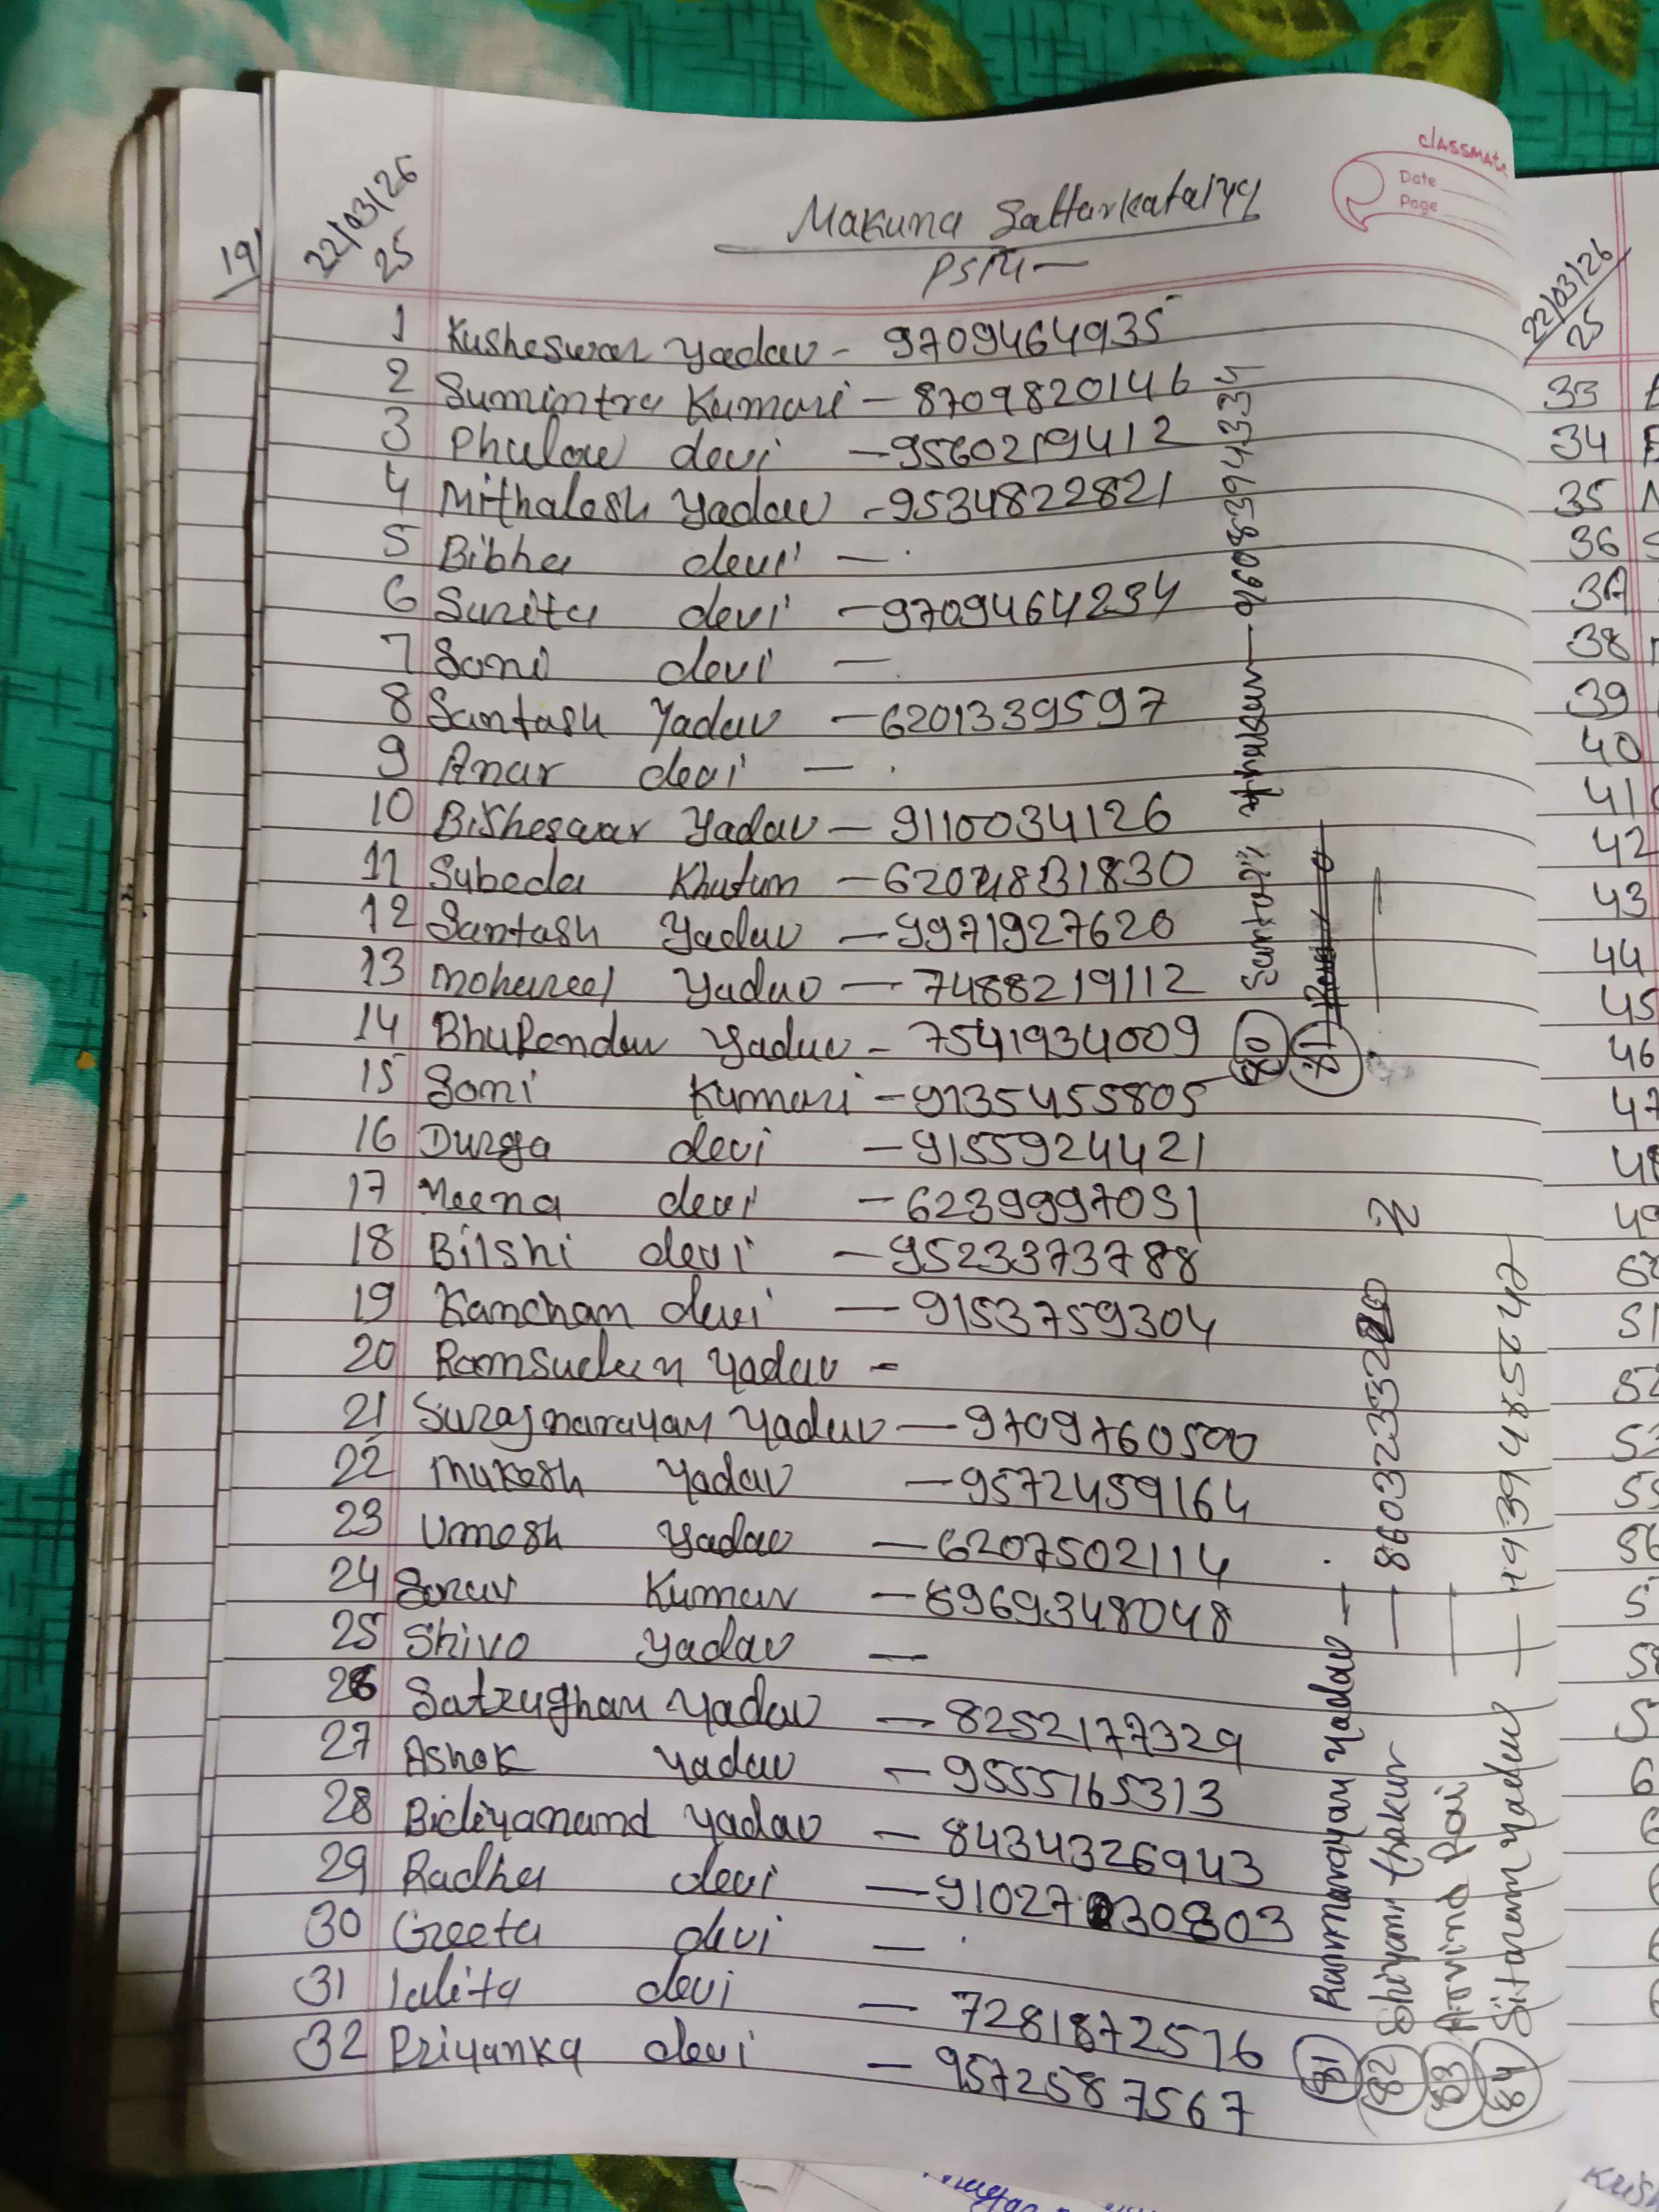 classmate
Date
Page
19
22/03/26
25
Makuna Sattarkataiya
PSM —
1 Kusheswar Yadav - 9709464935
2 Sumintra Kumari - 8709820146
3 Phulow devi - 9560219412
4 Mithalesh Yadav - 9534822821
5 Bibha devi -
6 Surita devi - 9709464234
7 Soni devi -
8 Santash Yadav - 6201339597
9 Anar devi -
10 Bisheswar Yadav - 9110034126
11 Subeda Khatun - 6204831830
12 Santash Yadav - 9971927620
13 Yadav - 7488219112
14 Bhupendar Yadav - 7541934009
15 Soni Kumari - 9135455805
16 Durga devi - 9155924421
17 Meena devi - 6239997051
18 Bilshi devi - 9523373788
19 Kanchan devi - 9153759304
20 Yadav -
21 Surajnarayan Yadav - 9709760500
22 Mukesh Yadav - 9572459164
23 Umesh Yadav - 6207502114
24 Sorav Kumar - 8969348048
25 Shivo Yadav -
26 Satrughan Yadav - 8252177329
27 Ashok Yadav - 9555165313
28 Bidiyanand Yadav - 8434326943
29 Radha devi -
30 Geeta devi -
31 lalita devi - 7281872516
32 Priyanka devi - 9572587567
80
81 Ramnarayan Yadav -
82 Shiyam thakur -
83 Arvind Rai
84 Sitaram Yadav -
22/03/26
25
33
34
35
36
37
38
39
40
41
42
43
44
45
46
47
48
49